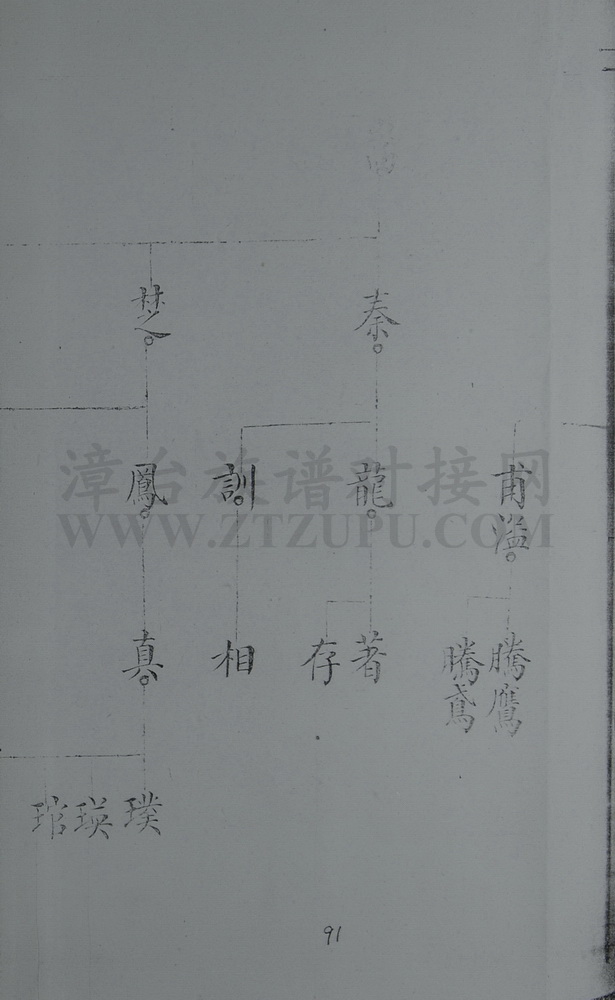 秦
楚
甫溢
龍
訓
鳳
騰鷹
騰鳶
著
存
相
真
璞
瑛
琯
漳台族谱对接网
WWW.ZTZUPU.COM
91